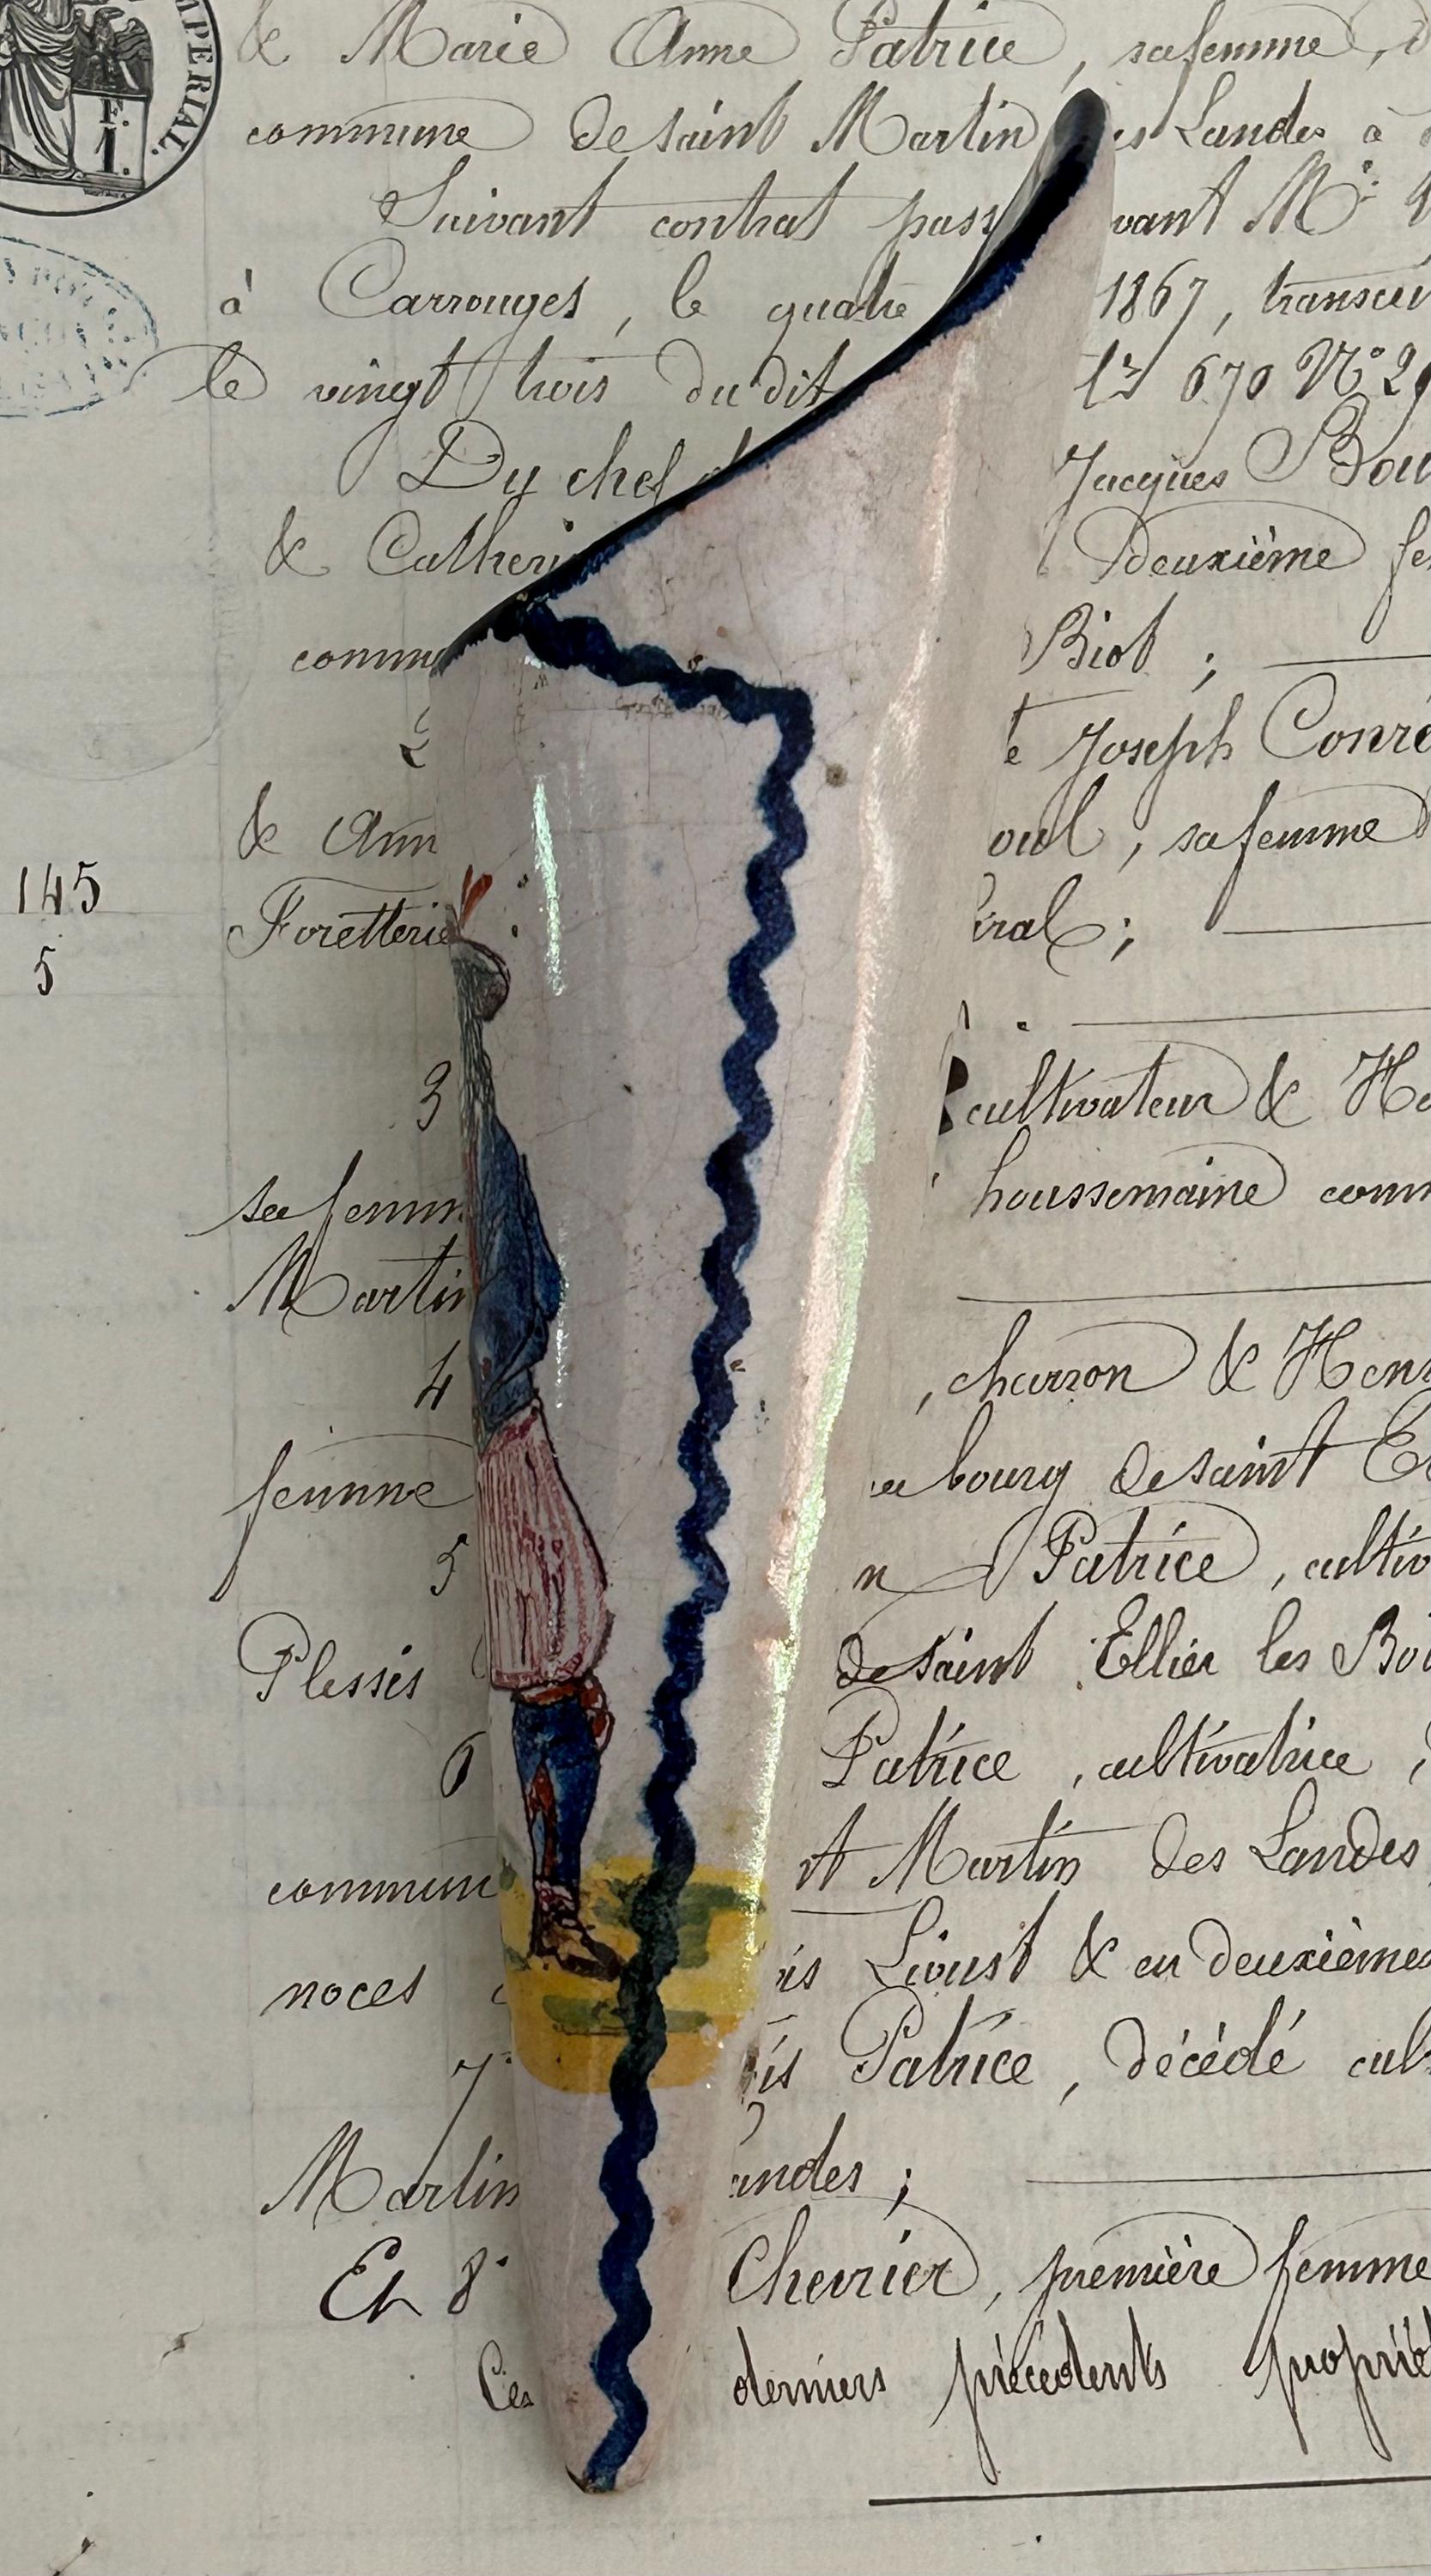 IMPERIAL.
F.
1.
& Marie Anne Patrice, sa femme,
commune de saint Martin es Landes à
Suivant contrat pass vant Me
à Carrouges, le quatre 1867, transcri
le vingt trois du dit 670 No 29
Du chef Jacques Bou
& Catheri Deuxième fe
commu Biot ;
2 e Joseph Conré
& Ann oul, sa femme
145
Foretterie ral ;
5
3 cultivateur & He
sa femm houssemaine comm
Martin
4 , charron & Henr
femme bourg de saint E
5 n Patrice, cultiv
Plessis de saint Ellier les Boi
6 Patrice, cultivatrice,
commun t Martin des Landes
noces is Lioust & en deuxièmes
7° is Patrice, décédé cul
Martin andes ;
Et 8° Chevrier, première femme
Ces derniers précédents proprié